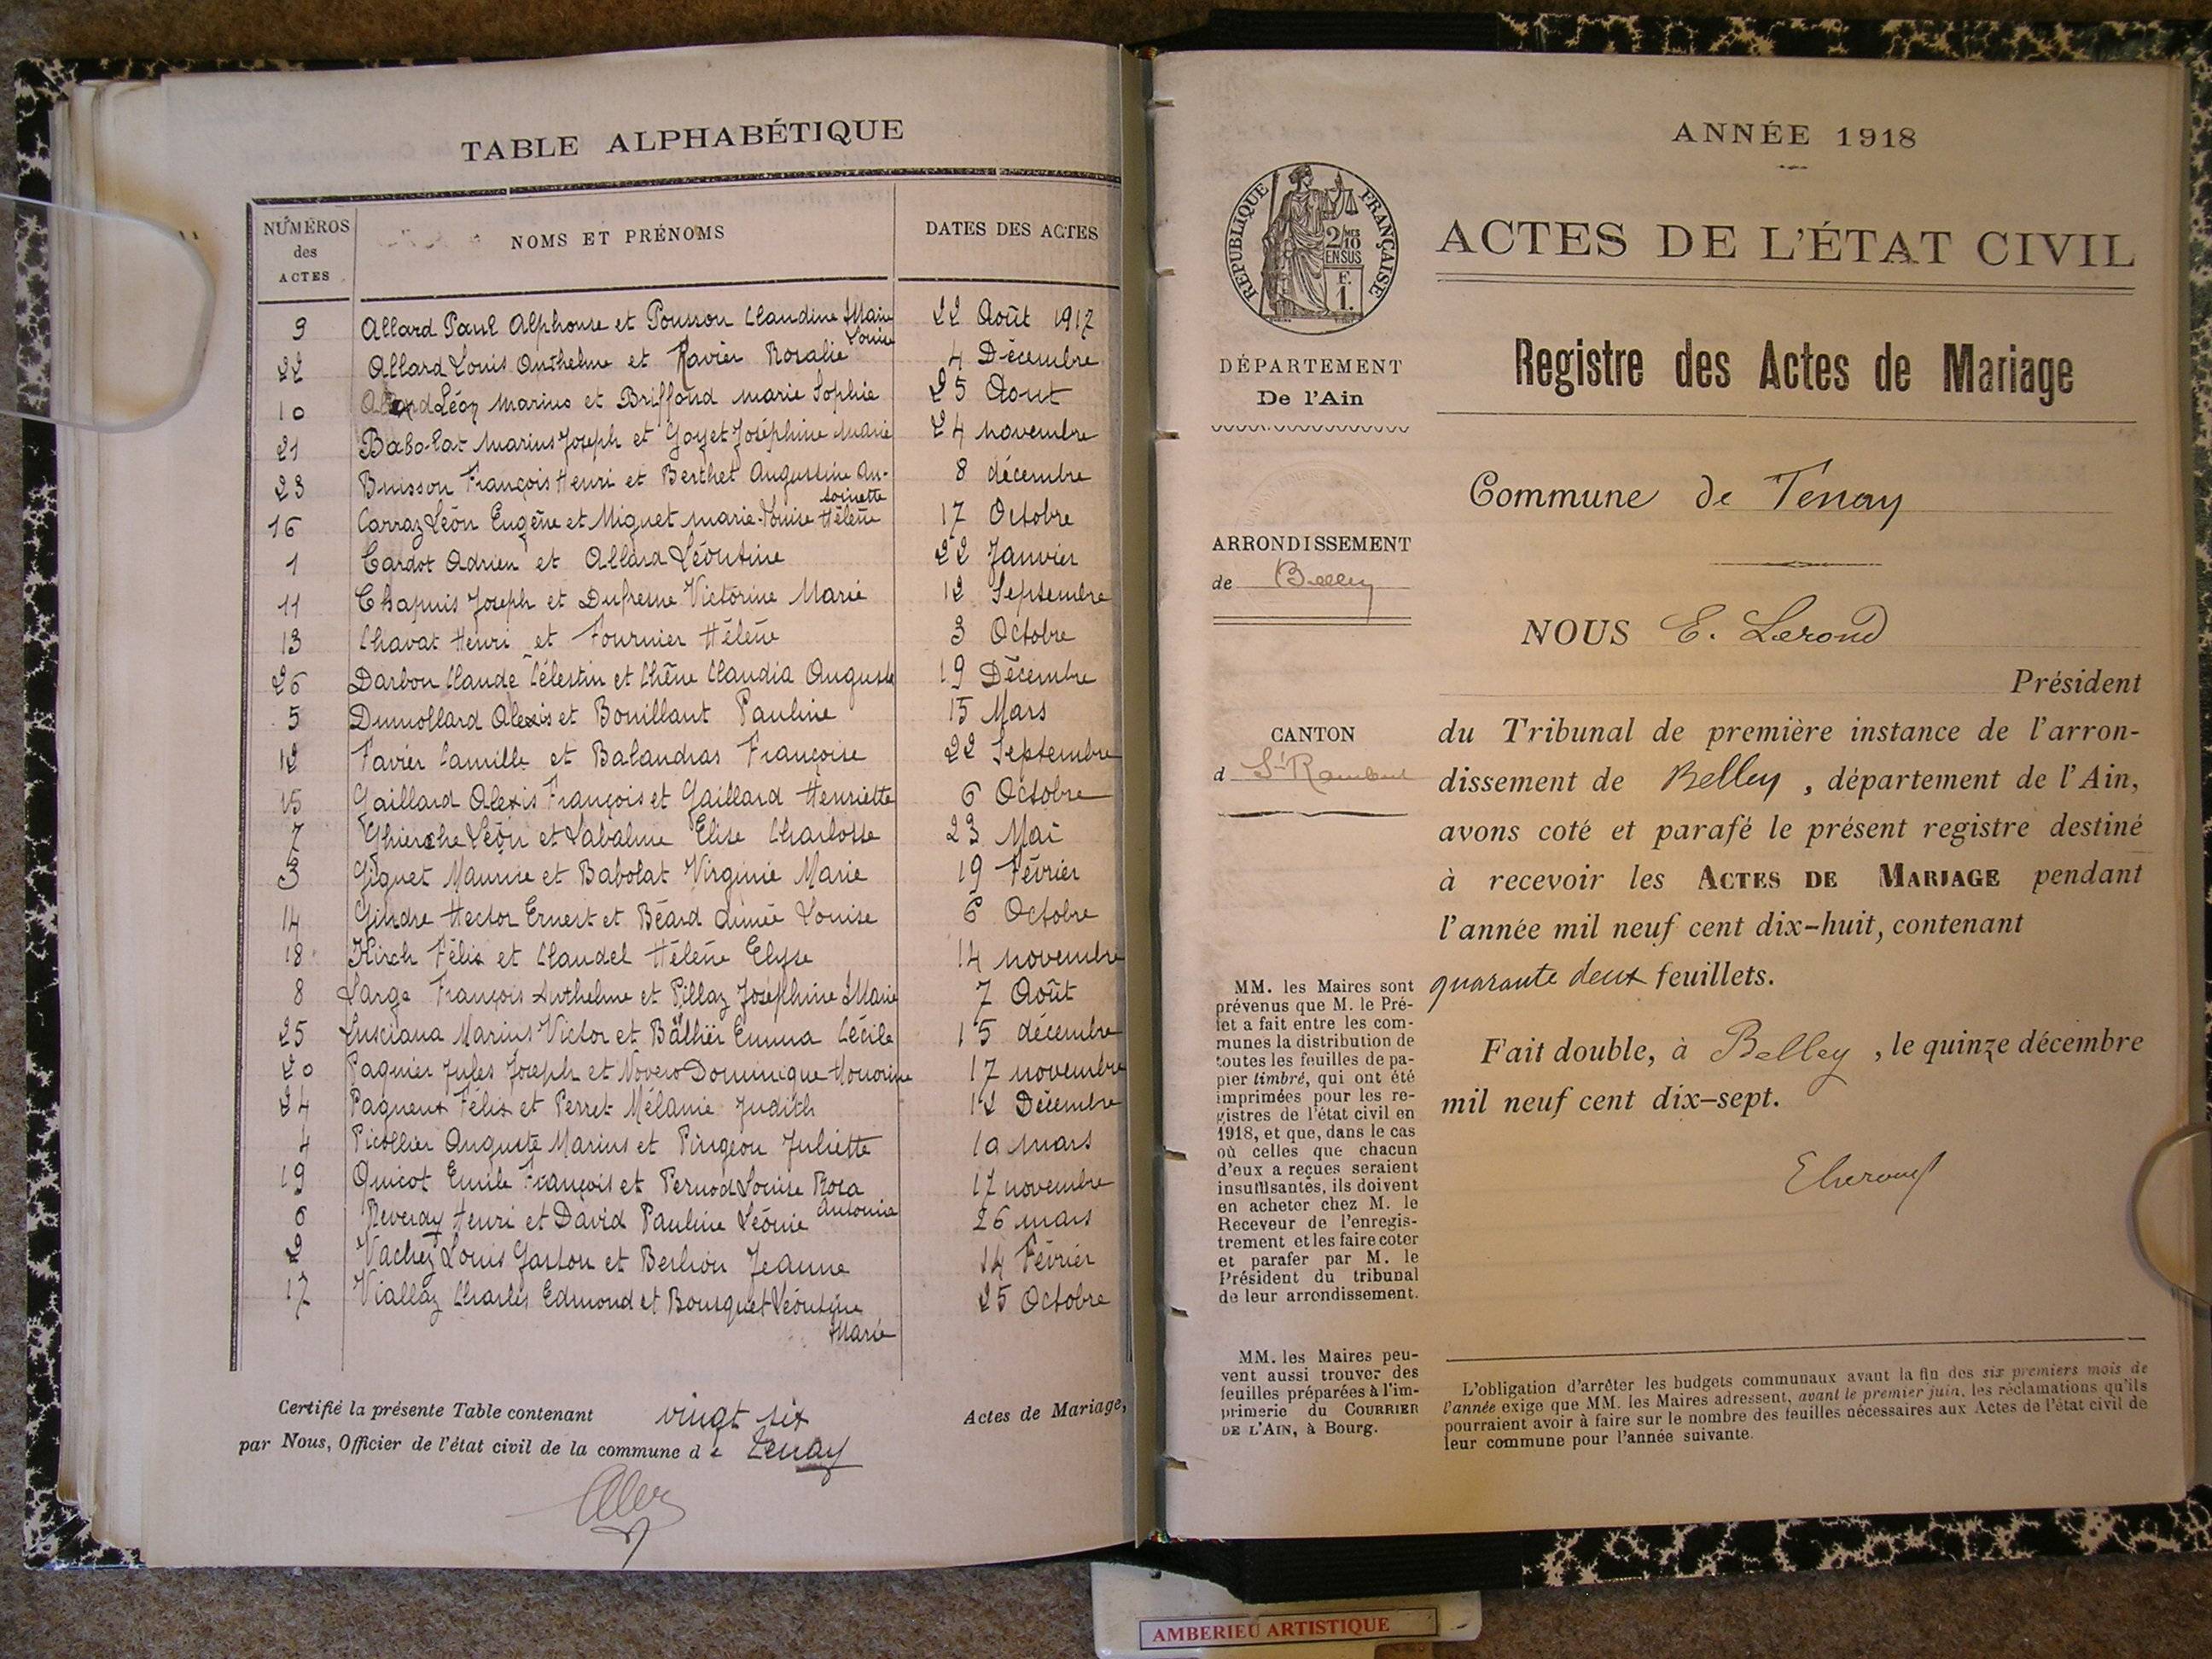 TABLE ALPHABÉTIQUE
NUMÉROS des ACTES NOMS ET PRÉNOMS DATES DES ACTES
9 Allard Paul Alphonse et Pousson Claudine Marie Louise 22 Août 1917
22 Allard Louis Anthelme et Ravier Rosalie 4 Décembre
10 Léon Marius et Briffond Marie Sophie 25 Aout
21 Babolat Marius Joseph et Goyet Joséphine Marie 24 novembre
23 Buisson François Henri et Berthet Augustine Antoinette 8 décembre
16 Carraz Léon Eugène et Miguet Marie-Louise Hélène 17 Octobre
1 Cardot Adrien et Allard Léontine 22 Janvier
11 Chapuis Joseph et Dufresne Victorine Marie 12 Septembre
13 Chavat Henri et Fournier Hélène 3 Octobre
26 Darbon Claude Célestin et Chêne Claudia Auguste 19 Décembre
5 Dumollard Alexis et Bouillant Pauline 15 Mars
12 Favier Camille et Balandras Françoise 22 Septembre
15 Gaillard Alexis François et Gaillard Henriette 6 Octobre
7 Ghierche Léon et Labalme Elise Charlotte 23 Mai
3 Giguet Maurice et Babolat Virginie Marie 19 Février
14 Gindre Hector Ernest et Béard Aimée Louise 6 Octobre
18 Kirch Félix et Claudel Hélène Elyse 14 novembre
8 Large François Anthelme et Pillaz Joséphine Marie 7 Août
25 Lusciana Marius Victor et Emma Cécile 15 décembre
20 Paquier Jules Joseph et Novero Dominique Honorine 17 novembre
24 Paqueux Félix et Perret Mélanie Judith 12 Décembre
4 Picollier Auguste Marius et Pingeon Juliette 10 mars
19 Quicot Emile François et Pernod Louise Rosa Antonia 17 novembre
6 Reveray Henri et David Pauline Léonie 26 mars
2 Vachez Louis Gaston et Berlion Jeanne 14 Février
17 Viallaz Charles Edmond et Bousquet Léontine Marie 25 Octobre
Certifié la présente Table contenant vingt six Actes de Mariage,
par Nous, Officier de l'état civil de la commune de Tenay
ANNÉE 1918
RÉPUBLIQUE FRANÇAISE
2/10 MES
EN SUS
F.
1.
ACTES DE L'ÉTAT CIVIL
Registre des Actes de Mariage
DÉPARTEMENT
De l'Ain
Commune de Tenay
ARRONDISSEMENT
de Belley
NOUS E. Lerond
Président
CANTON
d St Rambert
du Tribunal de première instance de l'arron-
dissement de Belley, département de l'Ain,
avons coté et parafé le présent registre destiné
à recevoir les ACTES DE MARIAGE pendant
l'année mil neuf cent dix-huit, contenant
quarante deux feuillets.
Fait double, à Belley, le quinze décembre
mil neuf cent dix-sept.
ELerond
MM. les Maires sont
prévenus que M. le Pré-
fet a fait entre les com-
munes la distribution de
toutes les feuilles de pa-
pier timbré, qui ont été
imprimées pour les re-
gistres de l'état civil en
1918, et que, dans le cas
où celles que chacun
d'eux a reçues seraient
insuffisantes, ils doivent
en acheter chez M. le
Receveur de l'enregis-
trement et les faire coter
et parafer par M. le
Président du tribunal
de leur arrondissement.
MM. les Maires peu-
vent aussi trouver des
feuilles préparées à l'im-
primerie du COURRIER
DE L'AIN, à Bourg.
L'obligation d'arrêter les budgets communaux avant la fin des six premiers mois de
l'année exige que MM. les Maires adressent, avant le premier juin, les réclamations qu'ils
pourraient avoir à faire sur le nombre des feuilles nécessaires aux Actes de l'état civil de
leur commune pour l'année suivante.
AMBERIEU ARTISTIQUE